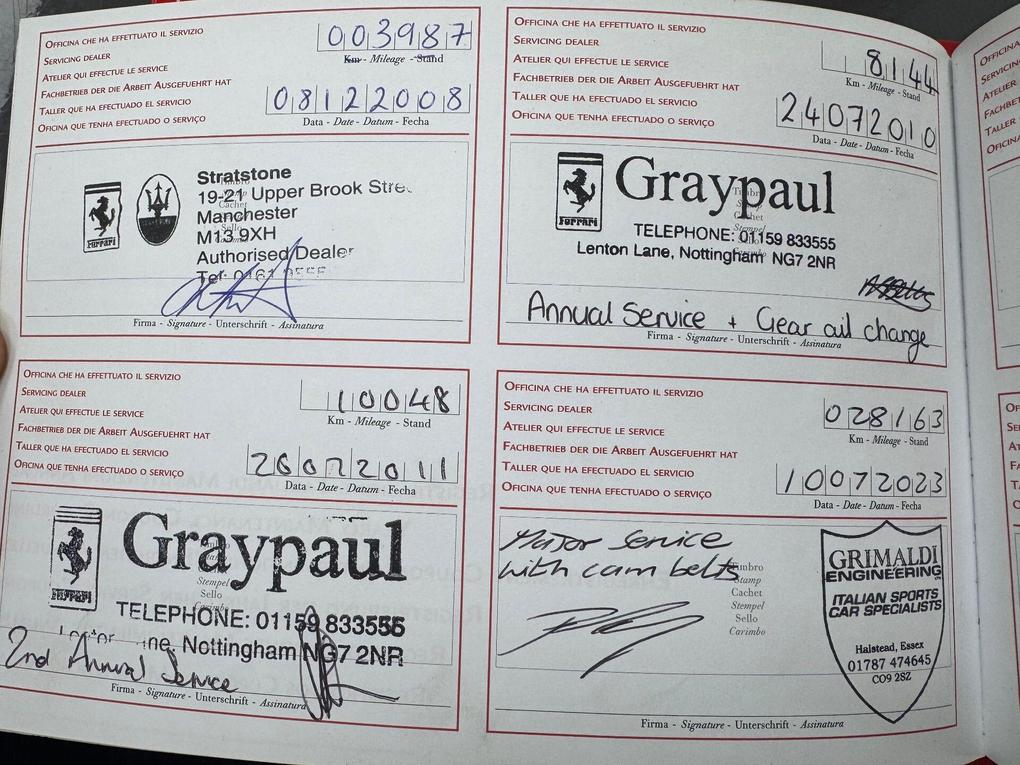 OFFICINA CHE HA EFFETTUATO IL SERVIZIO
SERVICING DEALER
ATELIER QUI EFFECTUE LE SERVICE
FACHBETRIEB DER DIE ARBEIT AUSGEFUEHRT HAT
TALLER QUE HA EFECTUADO EL SERVICIO
OFICINA QUE TENHA EFECTUADO O SERVIÇO
003987
Km - Mileage - Stand
08122008
Data - Date - Datum - Fecha
Ferrari
Stratstone
19-21 Upper Brook Stre
Manchester
M13 9XH
Authorised Dealer
Tel: 0161
Timbro
Stamp
Cachet
Sello
Firma - Signature - Unterschrift - Assinatura
OFFICINA CHE HA EFFETTUATO IL SERVIZIO
SERVICING DEALER
ATELIER QUI EFFECTUE LE SERVICE
FACHBETRIEB DER DIE ARBEIT AUSGEFUEHRT HAT
TALLER QUE HA EFECTUADO EL SERVICIO
OFICINA QUE TENHA EFECTUADO O SERVIÇO
8144
Km - Mileage - Stand
24072010
Data - Date - Datum - Fecha
Ferrari
Graypaul
TELEPHONE: 01159 833555
Lenton Lane, Nottingham NG7 2NR
Timbro
Stamp
Cachet
Stempel
Sello
Annual Service + Gear oil change
Firma - Signature - Unterschrift - Assinatura
OFFICINA CHE HA EFFETTUATO IL SERVIZIO
SERVICING DEALER
ATELIER QUI EFFECTUE LE SERVICE
FACHBETRIEB DER DIE ARBEIT AUSGEFUEHRT HAT
TALLER QUE HA EFECTUADO EL SERVICIO
OFICINA QUE TENHA EFECTUADO O SERVIÇO
10048
Km - Mileage - Stand
26072011
Data - Date - Datum - Fecha
Ferrari
Graypaul
TELEPHONE: 01159 833555
Nottingham NG7 2NR
Stempel
Sello
Carimbo
2nd Annual Service
Firma - Signature - Unterschrift - Assinatura
OFFICINA CHE HA EFFETTUATO IL SERVIZIO
SERVICING DEALER
ATELIER QUI EFFECTUE LE SERVICE
FACHBETRIEB DER DIE ARBEIT AUSGEFUEHRT HAT
TALLER QUE HA EFECTUADO EL SERVICIO
OFICINA QUE TENHA EFECTUADO O SERVIÇO
028163
Km - Mileage - Stand
10072023
Data - Date - Datum - Fecha
Major Service
with cam belts
Timbro
Stamp
Cachet
Stempel
Sello
Carimbo
GRIMALDI
ENGINEERING
ITALIAN SPORTS
CAR SPECIALISTS
Halstead, Essex
01787 474645
CO9 2SZ
Firma - Signature - Unterschrift - Assinatura